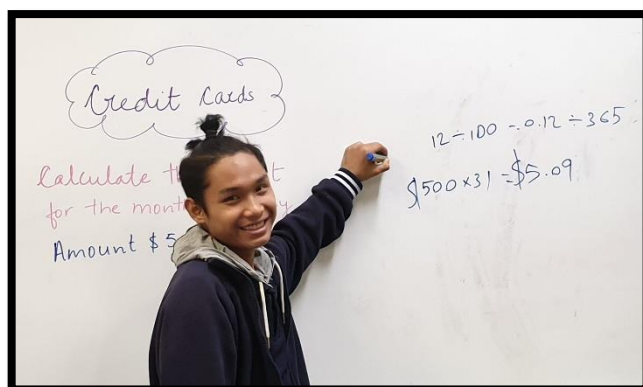 Credit Cards
Calculate
for the
Amount $5
12 ÷ 100 = 0.12 ÷ 365
$500 × 31 = $5.09